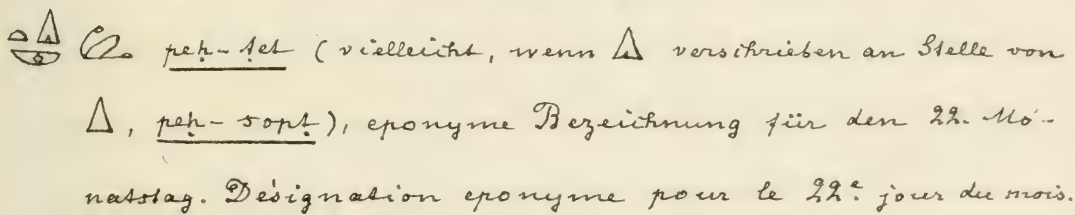 peḥ-ṭet (vielleicht, wenn verschrieben an Stelle von
, peḥ-sopṭ), eponyme Bezeichnung für den 22. Mo-
natstag. Désignation eponyme pour le 22ᵉ jour du mois.